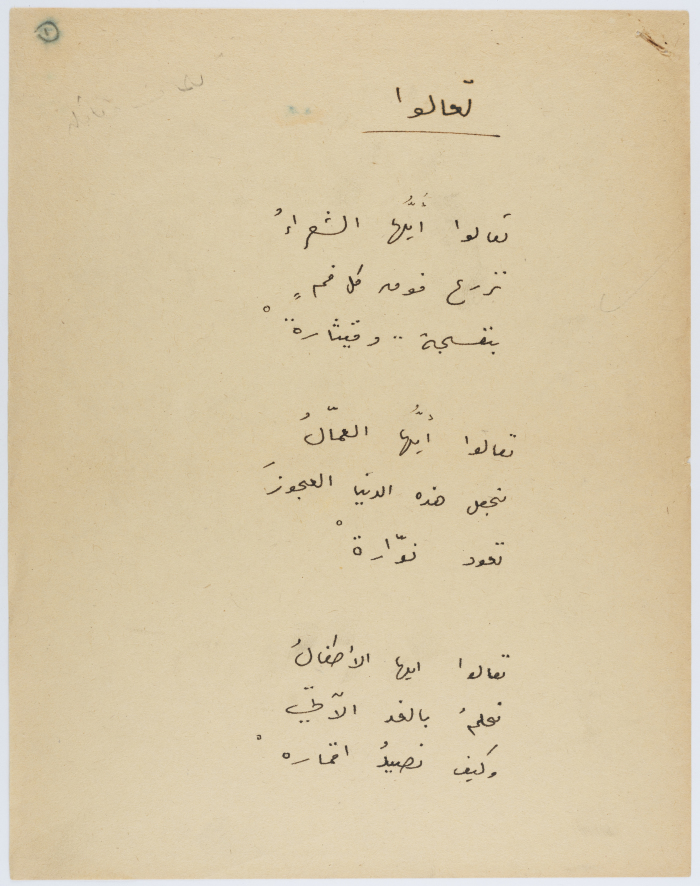 ١
تعالوا
تعالوا أيُّها الشعراءُ
نزرع فوق كل فمٍ
بنفسجة .. وقيثارةْ
تعالوا أيُّها العمّالُ
نجعل هذه الدنيا العجوزَ
تعود نوّارةْ
تعالوا ايها الأطفالُ
نحلمُ بالغد الآتي
وكيف نصيدُ اقمارهْ